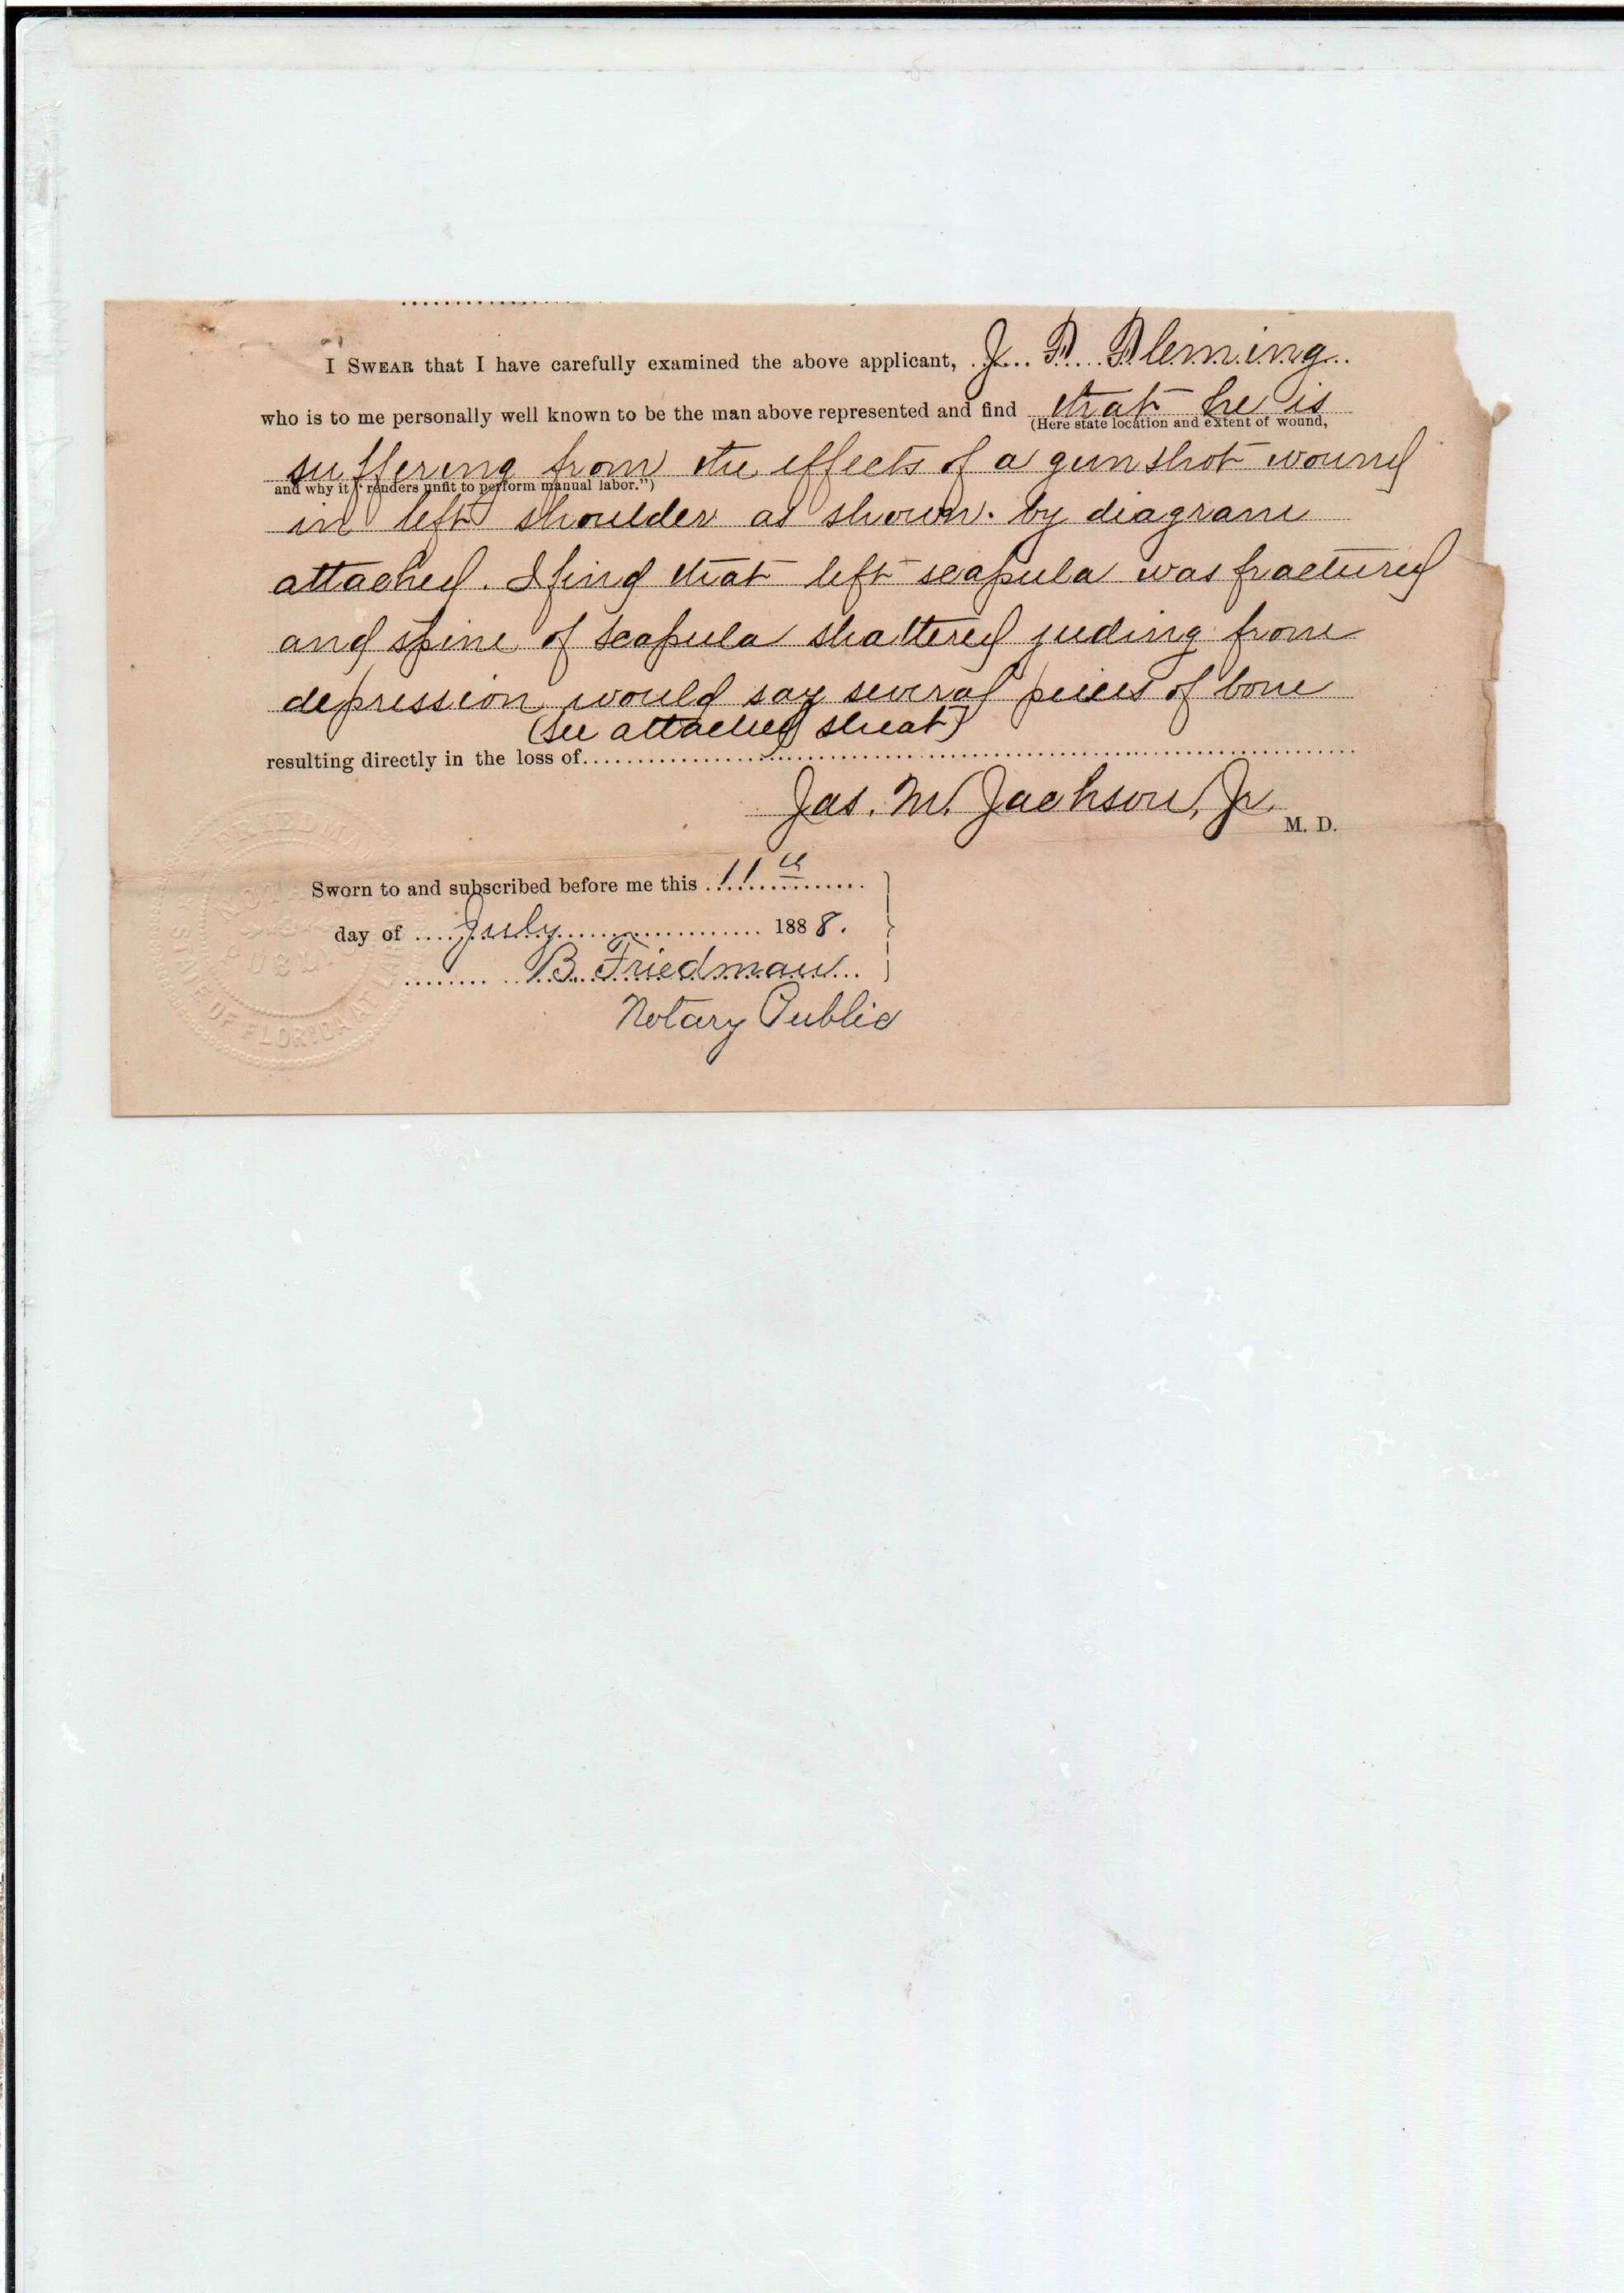 I SWEAR that I have carefully examined the above applicant, J. F. Fleming
who is to me personally well known to be the man above represented and find that he is
(Here state location and extent of wound,
suffering from the effects of a gun shot wound
and why it "renders unfit to perform manual labor.")
in left shoulder as shown by diagram
attached. I find that left scapula was fractured
and spine of scapula shattered juding from
depression would say several pieces of bone
(See attached sheat)
resulting directly in the loss of
Jas. M. Jackson, Jr. M. D.
Sworn to and subscribed before me this 11th
day of July 1888.
B. Friedman
Notary Public
B. FRIEDMAN
NOTARY
PUBLIC
STATE OF FLORIDA AT LARGE